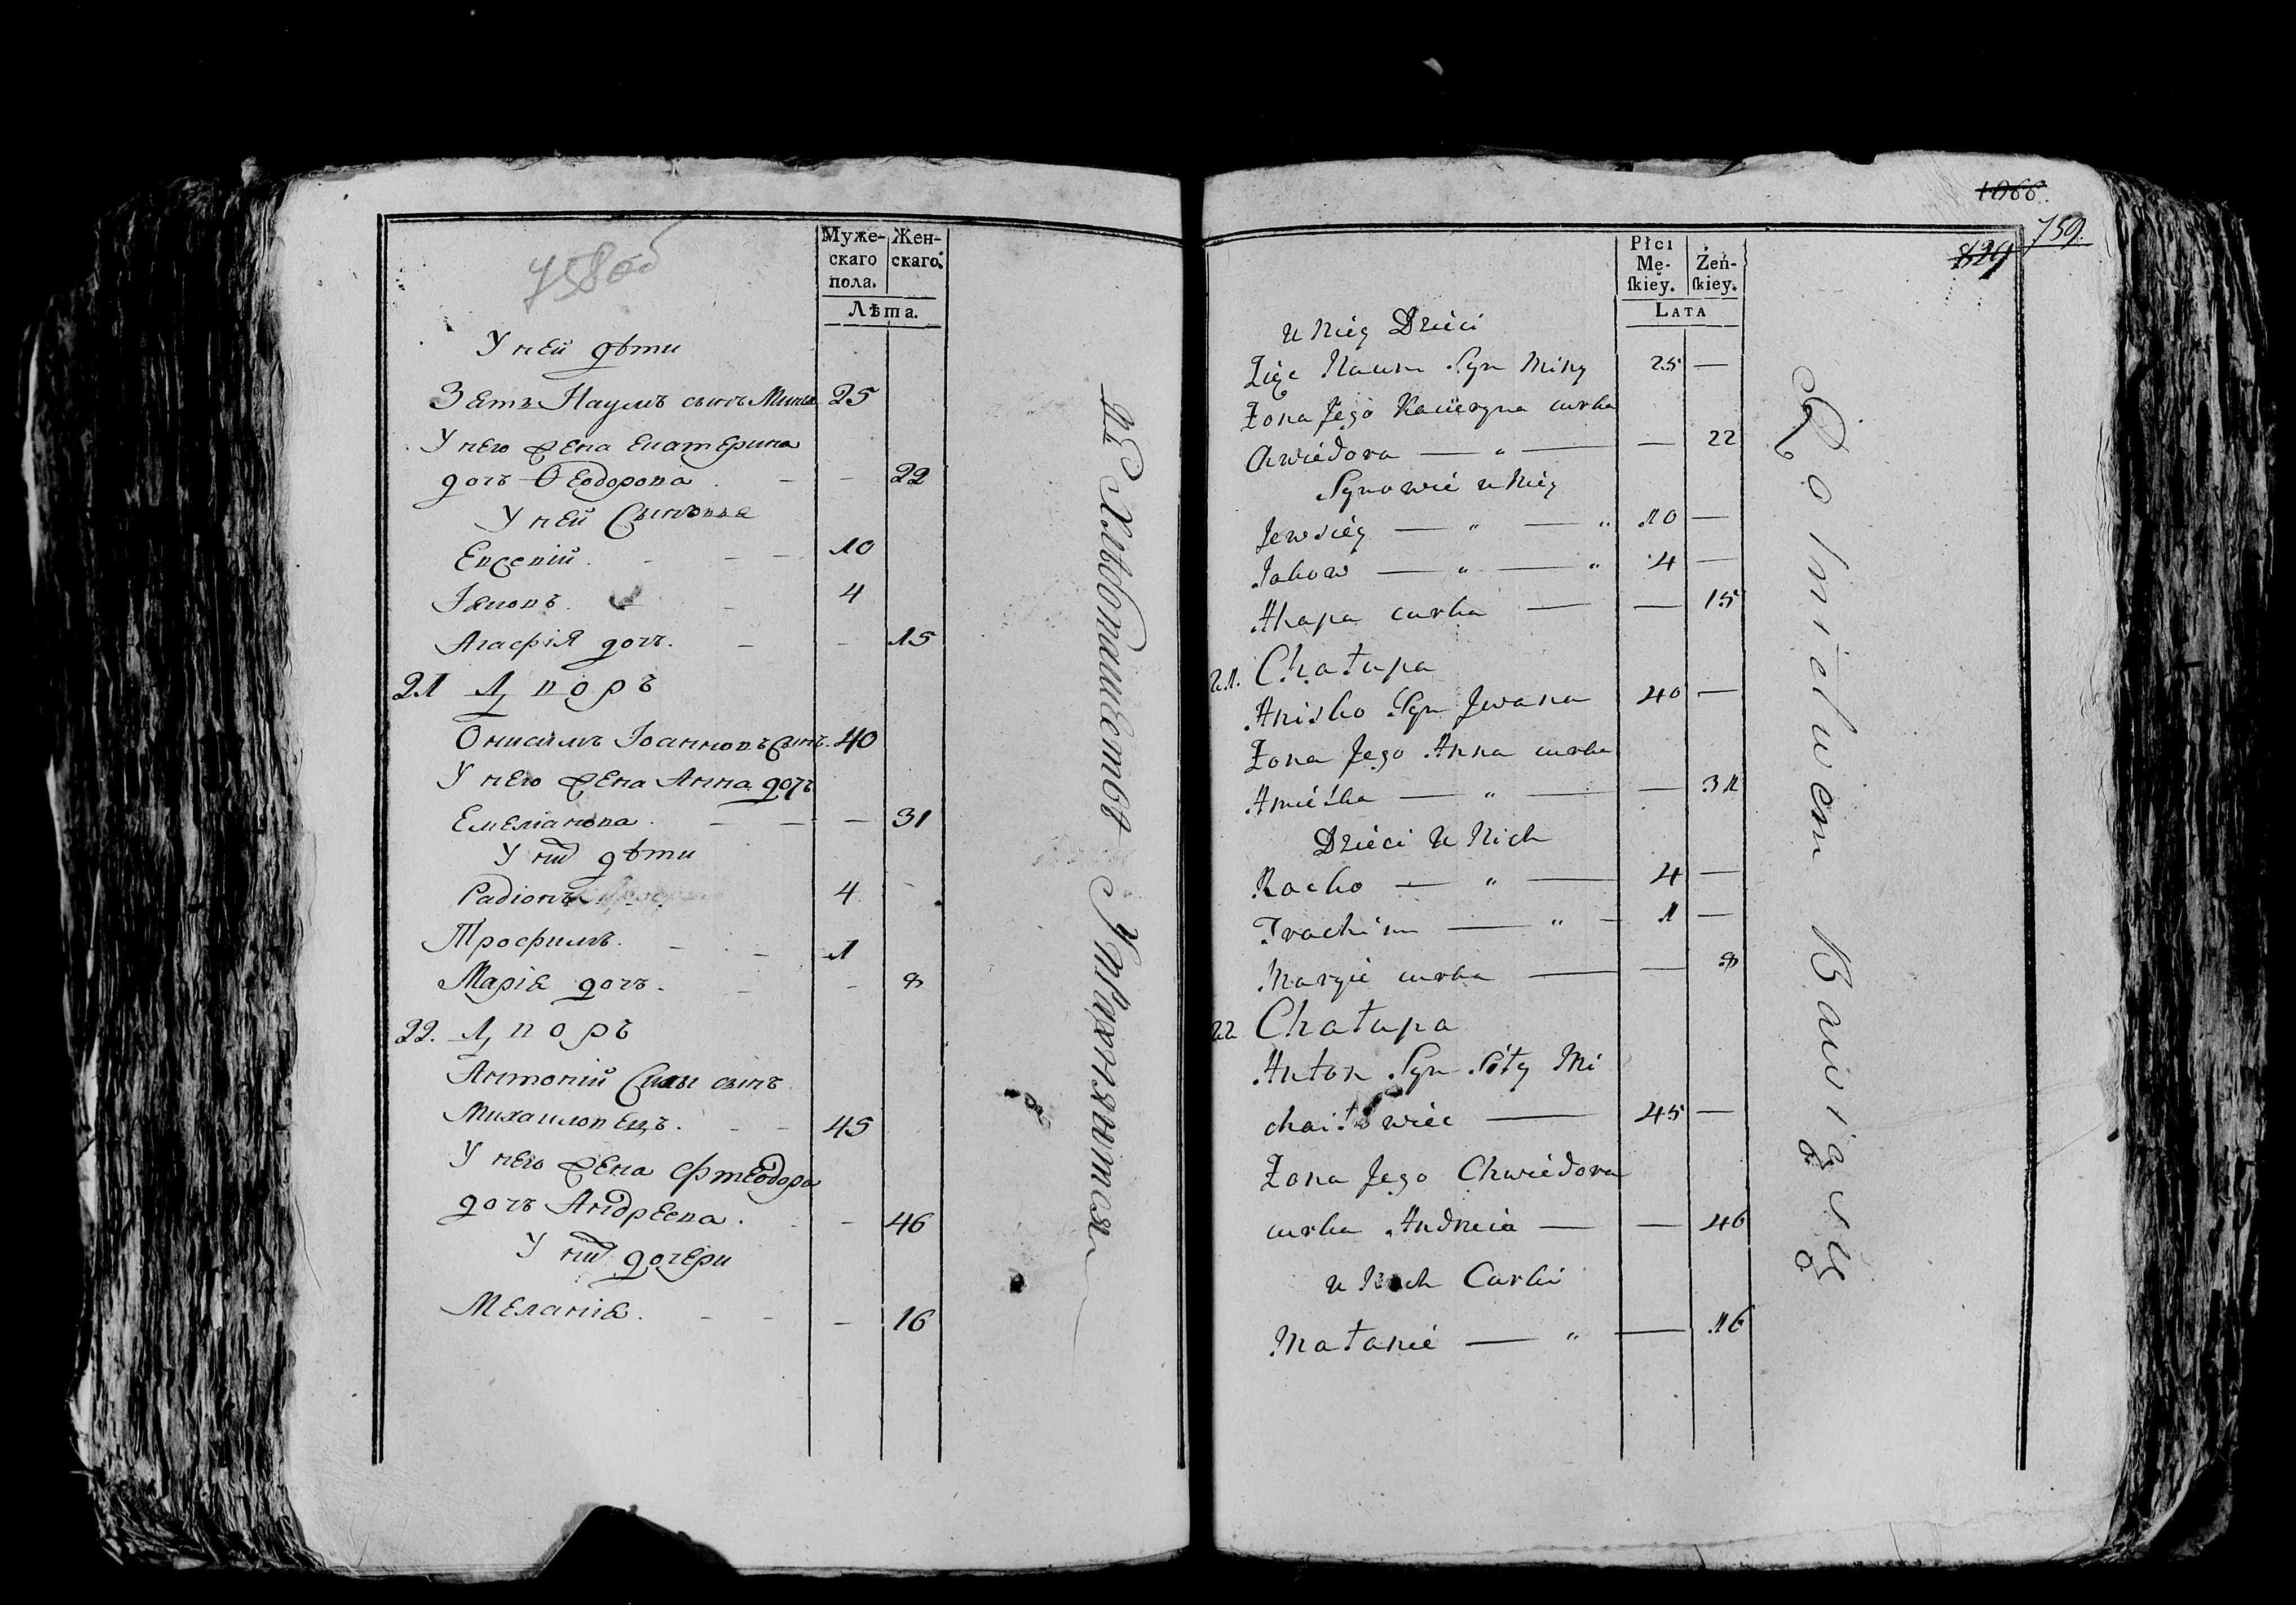 758 об
Муже-
скаго
пола.
Жен-
скаго.
Лѣта.
У ней дѣти
Зять Наумъ сынъ Мины 25
У него жена Екатерина
дочь Ѳеодорова. — — 22
У ней Сыновья
Евсевій. — — — 10
Іяковъ. — — 4
Агафія дочь. — — 15
21 Дворъ
Онисимъ Іоанновъ сынъ. 40
У него жена Анна дочь
Емеліанова. — — — 31
У них дѣти
Радіонъ 4
Трофимъ. — — 1
Марія дочь. — — 8
22. Дворъ
Антоній Силы сынъ
Михаиловецъ. — — 45
У него жена Фтеодора
дочь Андреева. — — 46
У них дочери
Меланія. — — — 16
въ Хлѣбопашествѣ Упражняются
1066.
829
759.
Płci
Mę-
skiey.
Żeń-
skiey.
LATA
u Niey Dzieci
Zięc Naum Syn Miny 25 —
Żona Jego Kacieryna curka
Chwiedora — „ — — 22
Synowie u Niey
Jewsiey — „ — „ 10 —
Jakow — „ — „ 4 —
Ahapa curka — — 15
21. Chałupa
Anisko Syn Jwana 40 —
Żona Jego Anna curka
— „ — — 31
Dzieci u Nich
Racko — „ — 4 —
Trachim — „ — 1 —
Maryie curka — — 8
22 Chałupa
Anton Syn Siły Mi
chaiłowiec — 45 —
Żona Jego Chwiedora
curka Andreia — — 46
u Nich Curki
Małanie — „ — — 16
Rolnictwem Bawią się